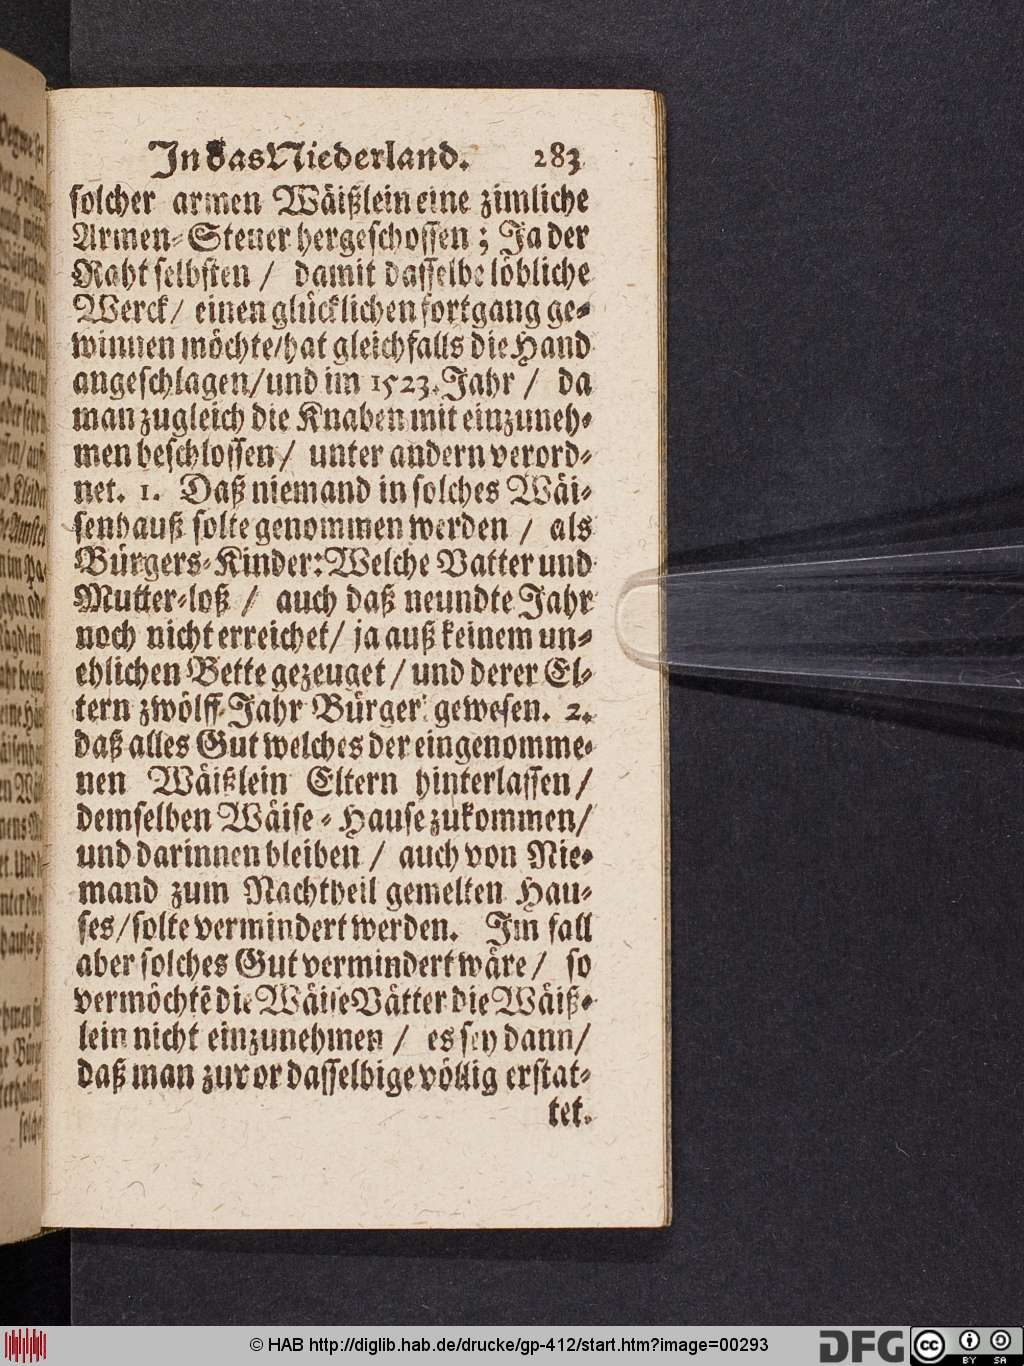 In das Niederland. 283
solcher armen Wäißlein eine zimliche
Armen-Steuer hergeschossen; Ja der
Raht selbsten / damit dasselbe löbliche
Werck / einen glücklichen fortgang ge-
winnen möchte / hat gleichfalls die Hand
angeschlagen / und im 1523. Jahr / da
man zugleich die Knaben mit einzuneh-
men beschlossen / unter andern verord-
net. 1. Daß niemand in solches Wäi-
senhauß solte genommen werden / als
Bürgers-Kinder: Welche Vatter und
Mutter-loß / auch daß neundte Jahr
noch nicht erreichet / ja auß keinem un-
ehlichen Bette gezeuget / und derer El-
tern zwölff Jahr Bürger gewesen. 2.
daß alles Gut welches der eingenomme-
nen Wäißlein Eltern hinterlassen /
demselben Wäise-Hause zukommen /
und darinnen bleiben / auch von Nie-
mand zum Nachtheil gemelten Hau-
ses / solte vermindert werden. Im fall
aber solches Gut vermindert wäre / so
vermöchtē die Wäise Vätter die Wäiß-
lein nicht einzunehmen / es sey dann /
daß man zuvor dasselbige völlig erstat-
tet.
© HAB http://diglib.hab.de/drucke/gp-412/start.htm?image=00293
DFG
cc BY SA